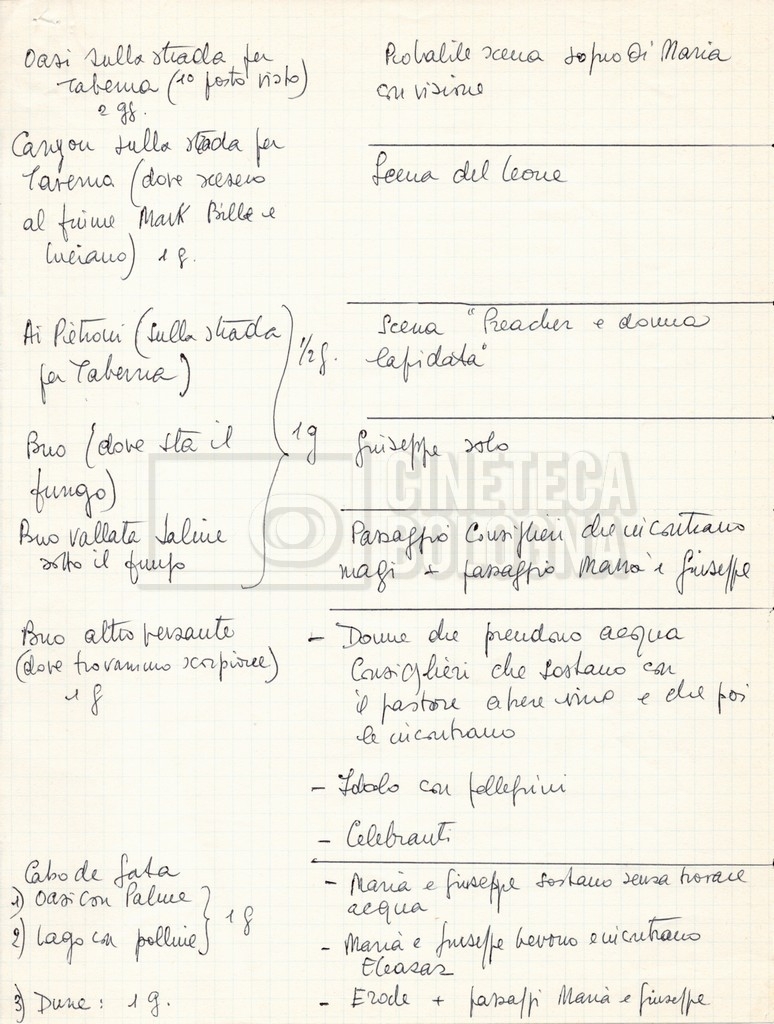 Oasi sulla strada per
Taberna (1° posto visto)
2 gg.
Probabile scena sogno di Maria
con visione
Canyon sulla strada per
Taverna (dove scesero
al fiume Mark Bille e
Luciano) 1 g.
Scena del leone
Ai Pietroni (sulla strada
per Taberna)
1/2 g.
Scena "Preacher e donna
lapidata"
Buo (dove sta il
fungo)
1 g
Giuseppe solo
Buo vallata Saline
sotto il fungo
Passaggio Consiglieri che incontrano
magi + passaggio Maria e Giuseppe
Buo altro versante
(dove trovammo scorpione)
1 g
- Donne che prendono acqua
Consiglieri che sostano con
il pastore a bere vino e che poi
le incontrano
- Idolo con pellegrini
- Celebranti
Cabo de Gata
1) Oasi con Palme
2) Lago con polline
1 g
- Maria e Giuseppe sostano senza trovare
acqua
- Maria e Giuseppe bevono e incontrano
Eleazar
3) Dune: 1 g.
- Erode + passaggi Maria e Giuseppe
CINETECA
BOLOGNA